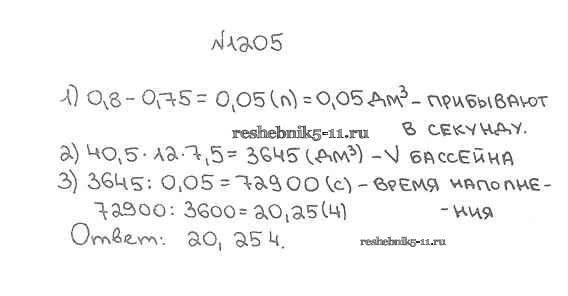 №1205
1) 0,8 - 0,75 = 0,05 (л) = 0,05 дм³ - прибывают
в секунду.
reshebnik5-11.ru
2) 40,5 · 12 · 7,5 = 3645 (дм³) - V бассейна
3) 3645 : 0,05 = 72900 (с) - время наполне-
72900 : 3600 = 20,25 (ч) - ния
Ответ: 20,25 ч.
reshebnik5-11.ru